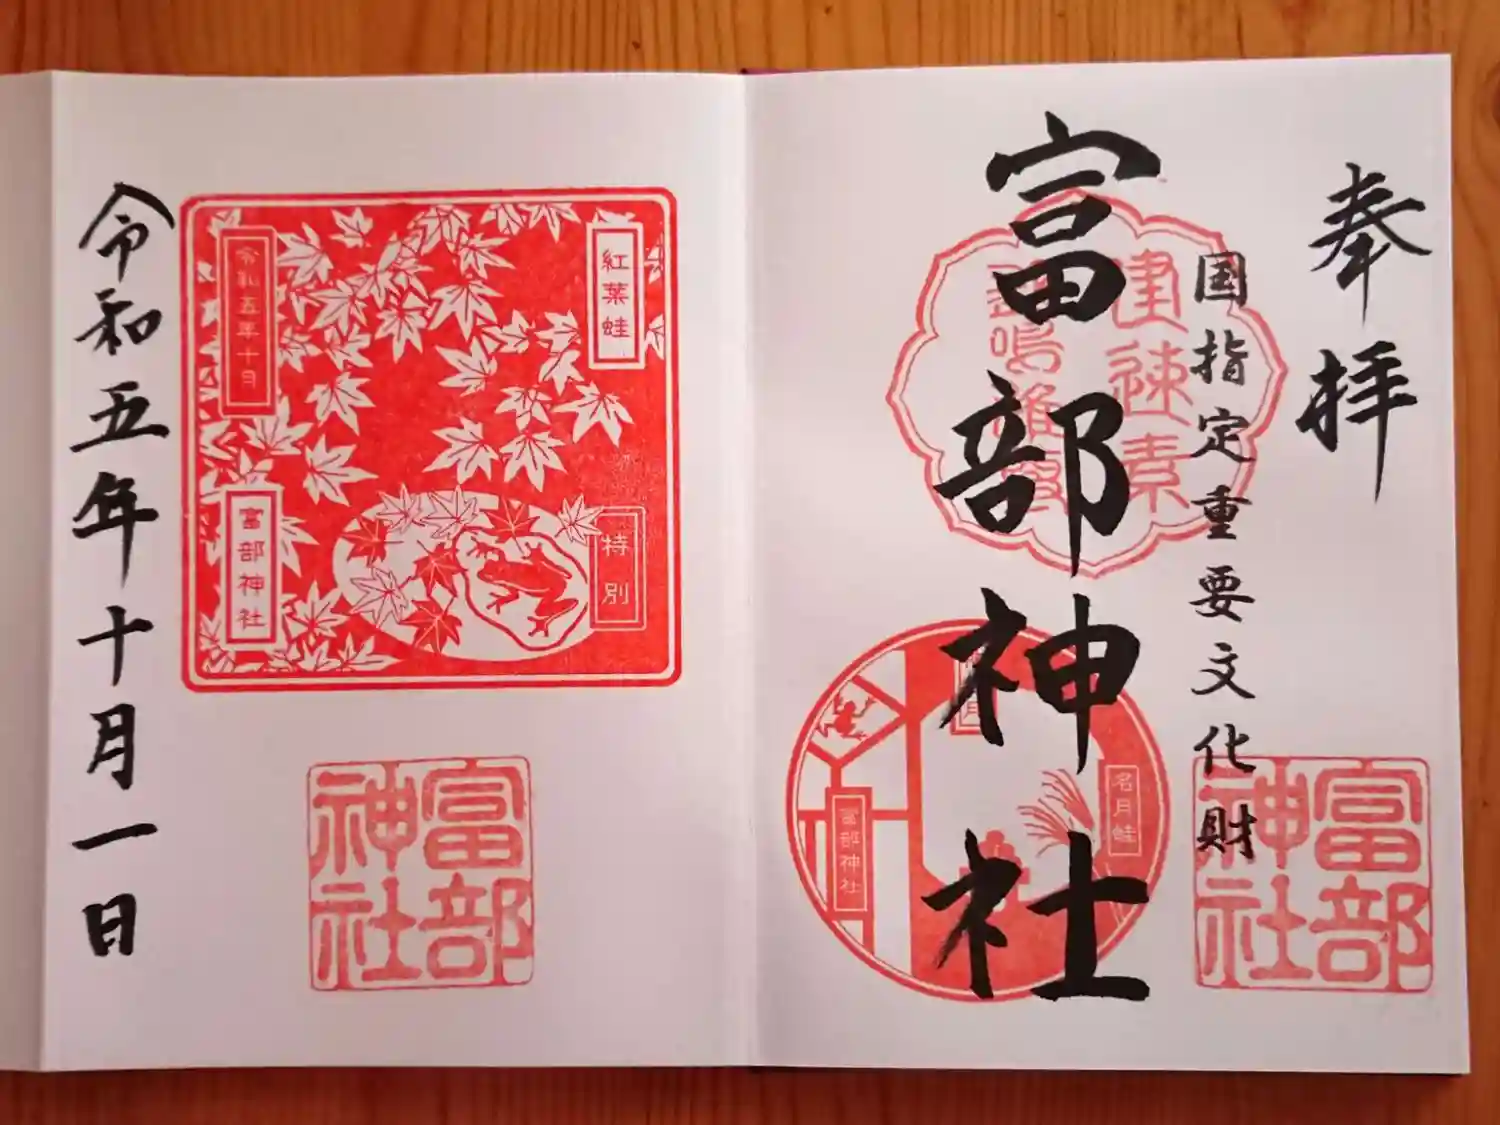 奉拝
国指定重要文化財
富部神社
建速素
名月蛙
富部神社
富部神社
紅葉蛙
特別
令和五年十月
富部神社
富部神社
令和五年十月一日